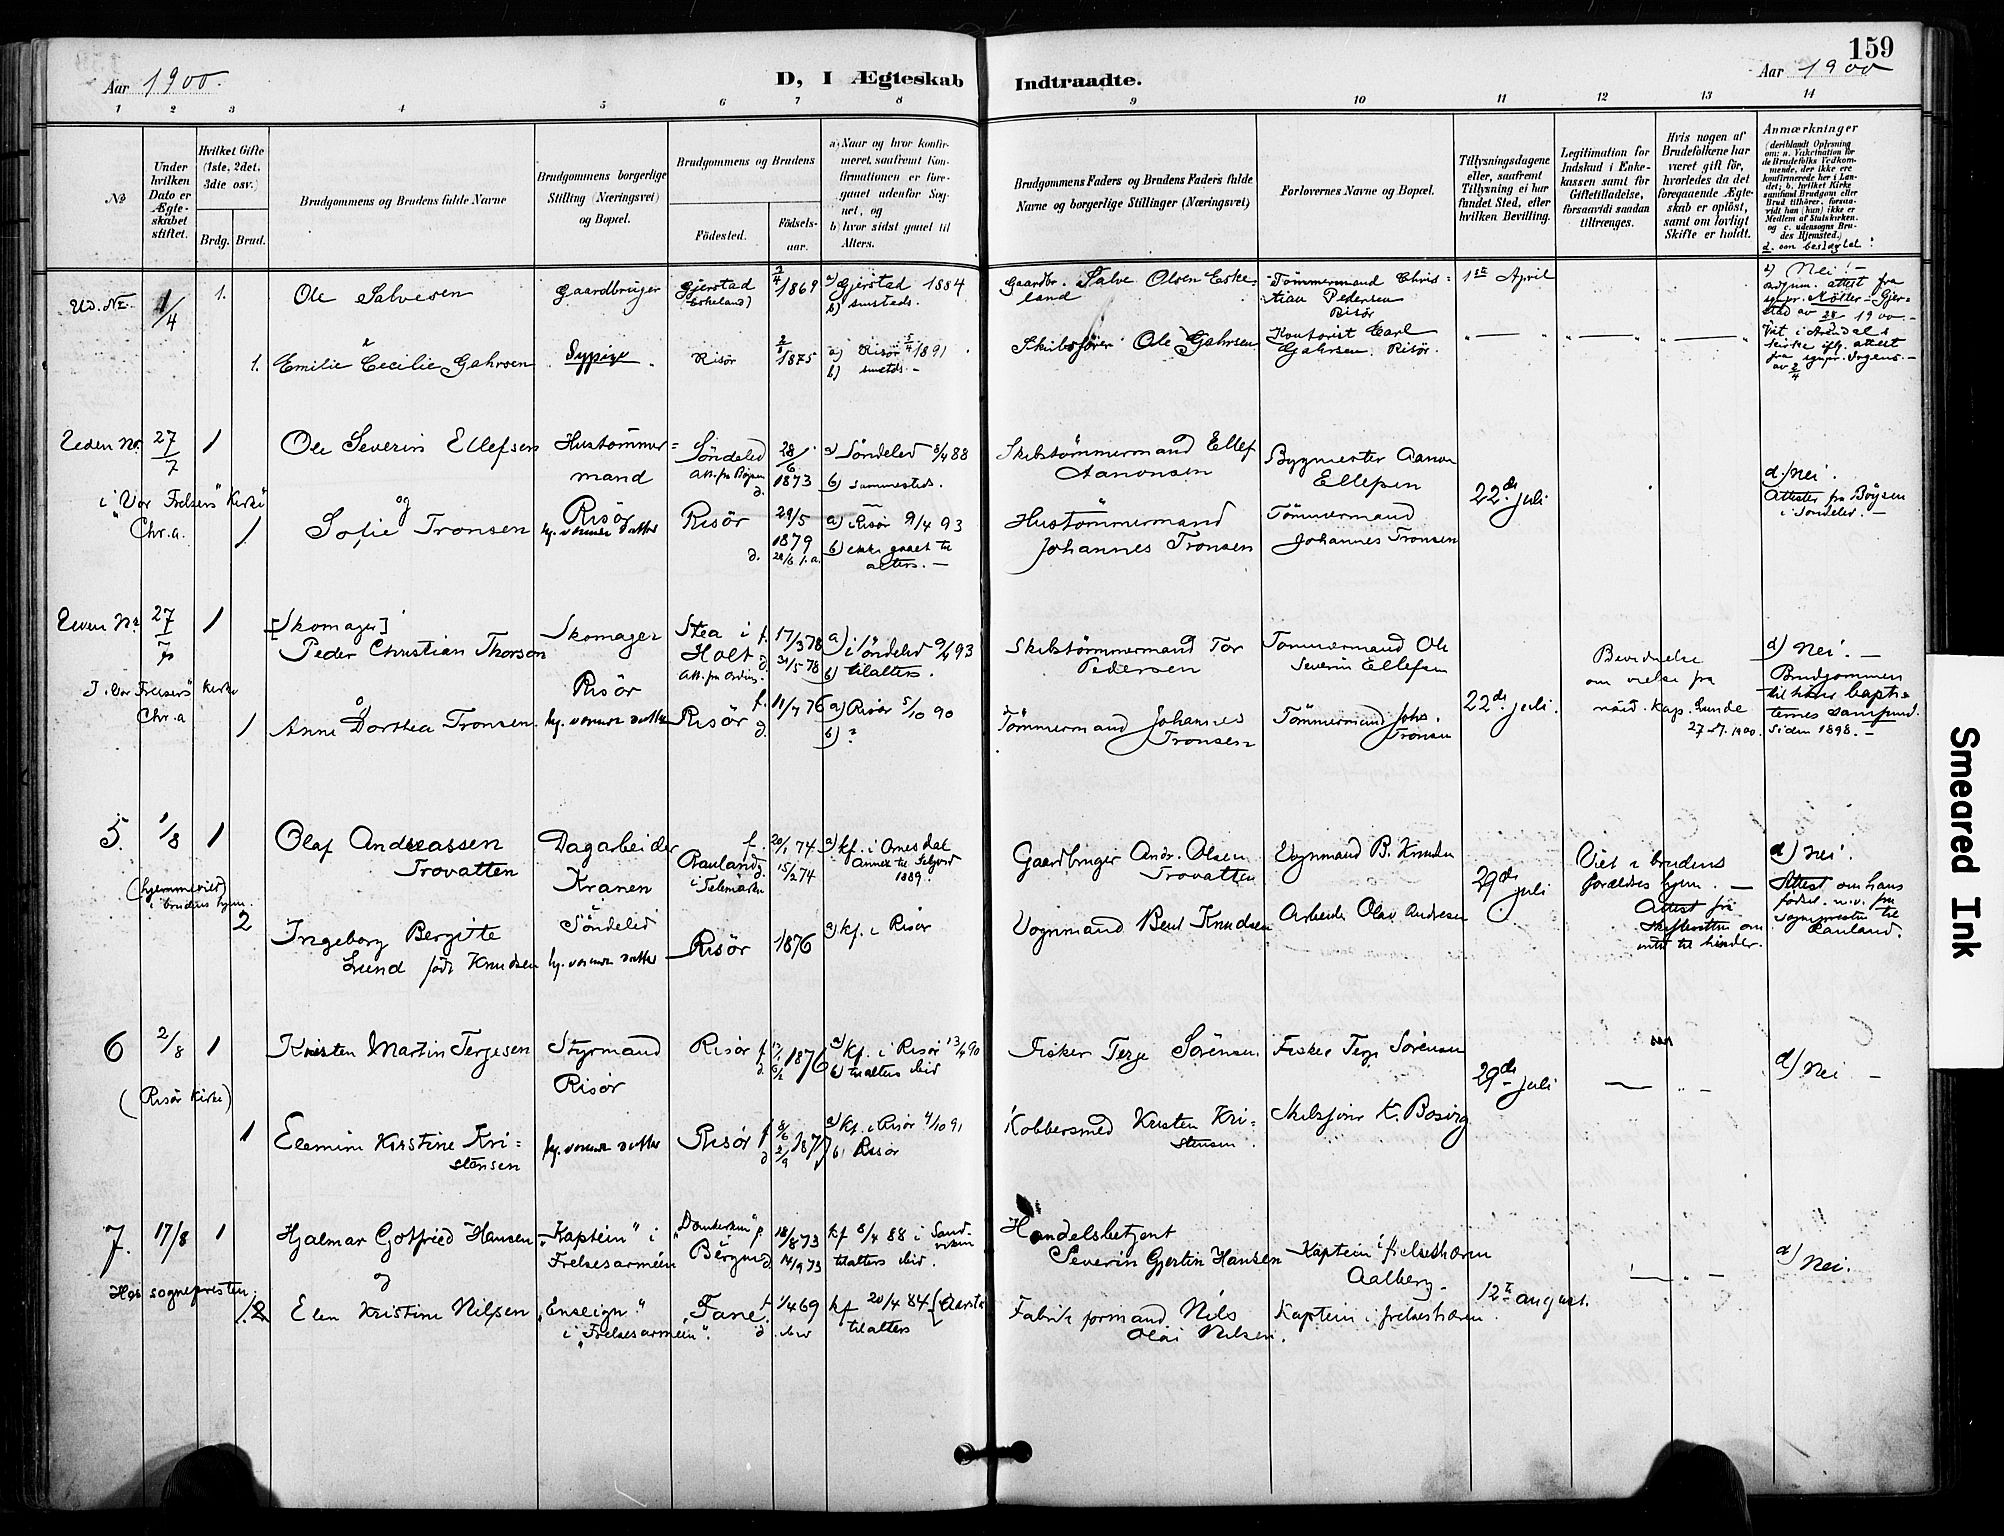 159
Aar 1900.
D, I Ægteskab Indtraadte.
Aar 1900
1 2 3 4 5 6 7 8 9 10 11 12 13 14
No
Under hvilken Dato er Ægteskabet stiftet.
Hvilket Gifte (1ste, 2det, 3die osv.)
Brdg. Brud.
Brudgommens og Brudens fulde Navne
Brudgommens borgerlige Stilling (Næringsvei) og Bopæl.
Brudgommens og Brudens
Fødested.
Fødselsaar.
a) Naar og hvor konfirmeret, saafremt Konfirmationen er foregaaet udenfor Sognet, og
b) hvor sidst gaaet til Alters.
Brudgommens Faders og Brudens Faders fulde Navne og borgerlige Stillinger (Næringsvei)
Forlovernes Navne og Bopæl.
Tillysningsdagene eller, saafremt Tillysning ei har fundet Sted, efter hvilken Bevilling.
Legitimation for Indskud i Enkekassen samt for Giftetilladelse, forsaavidt saadan tiltrænges.
Hvis nogen af Brudefolkene har været gift før, hvorledes da det foregaaende Ægteskab er opløst, samt om lovligt Skifte er holdt.
Anmærkninger
(deriblandt Oplysning om: a. Vakcination for de Brudefolks Vedkommende, der ikke ere konfirmerede her i Landet; b. hvilket Kirkesamfund Brudgom eller Brud tilhører, forsaavidt han (hun) ikke er Medlem af Statskirken. og c. udensogns Brudes Hjemsted.)
d. om beslægtet!
Ud. Nr. 1/4 1. Ole Salvesen Gaardbruger Gjerstad (Eskeland) 1869 a) Gjerstad 1884 b) smsteds. Gaardbr. Salve Olsen Eskeland Tømmermand Christian Pedersen Risør 1ste April d) Nei! —
attest fra sgnpr. Gjerstad av 1900. —
Viet i Arendals kirke ifl. attest fra sgnpr.
& 1. Emilie Cecilie Gahrsen Sypige. Risør 1875 a) Risør 1891. b) smstds. — Skibsfører Ole Gahrsen Kontorist Carl Gahrsen. Risør.
Uden Nr. 27/7 1 Ole Severin Ellefsen Hustømmermand Risør Søndeled 28/6 1873 a) Søndeled 8/4 88 b) sammesteds. Skibstømmermand Ellef Aanonsen Bygmester Aanon Ellefsen 22de juli d. nei. Attester fra Böysen i Søndeled. —
i "Vor Frelsers" Kirke Chr.a.
og 1 Sofie Tronsen hj. værende datter Risør 29/5 1879 a) i Risør 9/4 93 b) ikke gaaet til alters. — Hustømmermand Johannes Tronsen Tømmermand Johannes Tronsen
Uden Nr. 27/7 1 [Skomager] Peder Christian Thorson Skomager Risør Stea i Holt f. 17/3 78 d. 30/5 78 a) i Søndeled 9/4 93 b) tilalters. Skibstømmermand Tor Pedersen Tømmermand Ole Severin Ellefsen 22de juli. d) Nei. — Brudgommen tilhører baptisternes samfund siden 1898. —
Bevidnelse om vielse fra Kap. Lunde 27-7. 1900.
I "Vor Frelsers" Kirke Chr.a
og 1 Anne Dorthea Tronsen. hj. værende datter Risør f. 11/7 76 a) Risør 5/10 90 b) ? Tømmermand Johannes Tronsen Tømmermand Johs. Tronsen
5. 1/8 1 Olaf Andreassen Trovatten Dagarbeider Kranen Søndeled Rauland i Telemarken f. 20/1 74 d. 15/2 74 a) kf. i Omesdal annex til Seljord 1889. Gaardbruger Andr. Olsen Trovatten Vognmand B. Knudsen 29de juli Viet i brudens forældres hjem. — d) nei. Attest om hans fødsel m.v. fra sogneprest til Rauland.
(hjemmeviet) i brudens hjem.
2 Ingeborg Bergitte Lund født Knudsen hj. værende datter Risør 1876 a) kf. i Risør Vognmand Bent Knudsen Arbeider Olav Andresen Attest fra Skifteretten om intet til hinder.
6 2/8 1 Kristen Martin Terjesen Styrmand Risør Risør f. d. 1876 a) kf. i Risør 13/4 90 b) tilalters ibid Fisker Terje Sörensen Fisker Terje Sörensen 29de juli — " — d) nei —
(Risør Kirke)
1 Elemine Kirstine Kristensen hj. værende datter Risør f 8/6 d 2/9 1877 a) kf. i Risør 4/10 91 b) Risør Kobbersmed Kristen Kristensen. Skibsfører K. Bosvig
7. 17/8 1 Hjalmar Gotfried Hansen "Kaptein" i Frelsesarmeen "Domkirken" Bergen f. 18/8 73 d 14/9 73 kf 8/4 88 i Sandviken tilalters ibid. Handelsbetjent Severin Gjertin Hansen Kaptein i frelseshæren Aalberg. 12te august. — " — d) nei.
Hos sognepresten.
og 1. Elen Kristine Nilsen "Enseign" i "Frelsesarmeen". Fane. f 1/4 69 d. ibid kf 20/4 84 (Aarstad tilalters Fabrikformand Nils Olai Nilsen. Kaptein i frelseshæren.
Smeared Ink